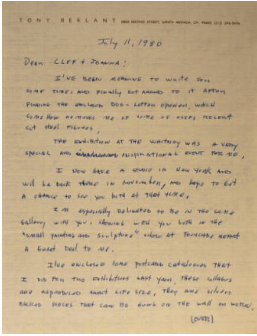 TONY BERLANT
July 11, 1980
Dear CLEF & JOANNA:
I'VE BEEN MEANING TO WRITE FOR
SOME TIME, AND FINALLY GOT AROUND TO IT AFTER
FINDING THE ENCLOSED DOG-LETTER OPENER, WHICH
SOMEHOW REMINDS ME OF SOME OF RECENT
CUT STEEL FIGURES.
THE EXHIBITION AT THE WHITNEY WAS A VERY
SPECIAL AND INSPIRATIONAL EVENT FOR ME.
I NOW HAVE A IN NEW YORK AND
WILL BE BACK THERE IN NOVEMBER, AND HOPE TO GET
A CHANCE TO SEE YOU BOTH AT THAT TIME.
I'M ESPECIALLY DELIGHTED TO BE IN THE SAME
GALLERY WITH YOU. SHOWING WITH YOU BOTH IN THE
"SMALL PAINTING AND SCULPTURE" SHOW AT MEANT
A GREAT DEAL TO ME.
I'VE ENCLOSED SOME POSTCARD CATALOGUES THAT
I DID FOR THE EXHIBITIONS LAST YEAR. THESE
ARE LIFE SIZE, THEY ARE
PIECES THAT CAN BE HUNG ON THE WALL OR
(OVER)